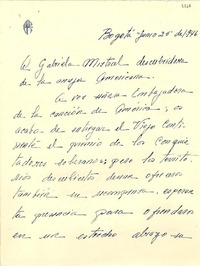 Bogotá Junio 25 de/1946
A Gabriela Mistral descubridora
de la nueva Americana.
A vos señora Embajadora
de la canción de América, os
acaba de entregar el Viejo Conti-
nente el premio de los Conquis-
tadores soberanos; pero los territo-
rios descubiertos desean ofrecer
también su recompensa, esperan
la presencia para ofrendar
en un estrecho abrazo su